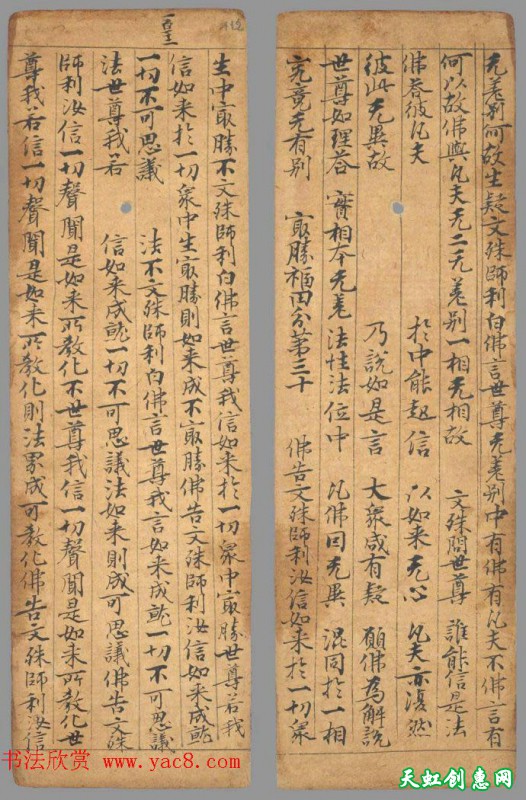 无差别何故生疑文殊師利白佛言世尊无差别中有佛有凡夫不佛言有
何以故佛與凡夫无二无差别一相无相故 文殊問世尊 誰能信是法
佛荅彼凡夫 於中能起信 以如来无心 凡夫亦復然
彼此无異故 乃說如是言 大衆咸有疑 願佛為解說
世尊如理荅 實相本无差 法性法位中 凡佛因无異 混同於一相
究竟无有别 㝡勝福田分第三十 佛告文殊師利汝信如来於一切衆
生中㝡勝不文殊師利白佛言世尊我信如来於一切衆中㝡勝世尊若我
信如来於一切衆中生㝡勝則如来成不㝡勝佛告文殊師利汝信如来成就
一切不可思議 法不文殊師利白佛言世尊我言如来成就一切不可思議
法世尊我若 信如来成就一切不可思議法如来則成可思議佛告文殊
師利汝信一切聲聞是如来所教化不世尊我信一切聲聞是如来所教化世
尊我若信一切聲聞是如来所教化則法界成可教化佛告文殊師利汝信
书法欣赏 www.yac8.com
天虹创意网